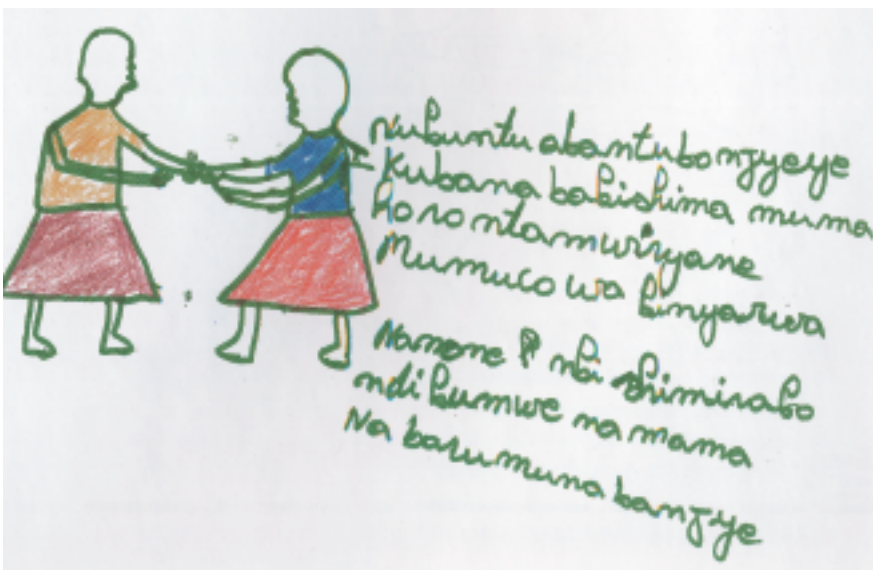 nubuntu abantubonjyeye
Kubana babishima muma
horo ntamwiryane
Mumuco wa kinyarwa
Namone nbi shimirabo
ndikumwe na mama
Na barumuna banjye